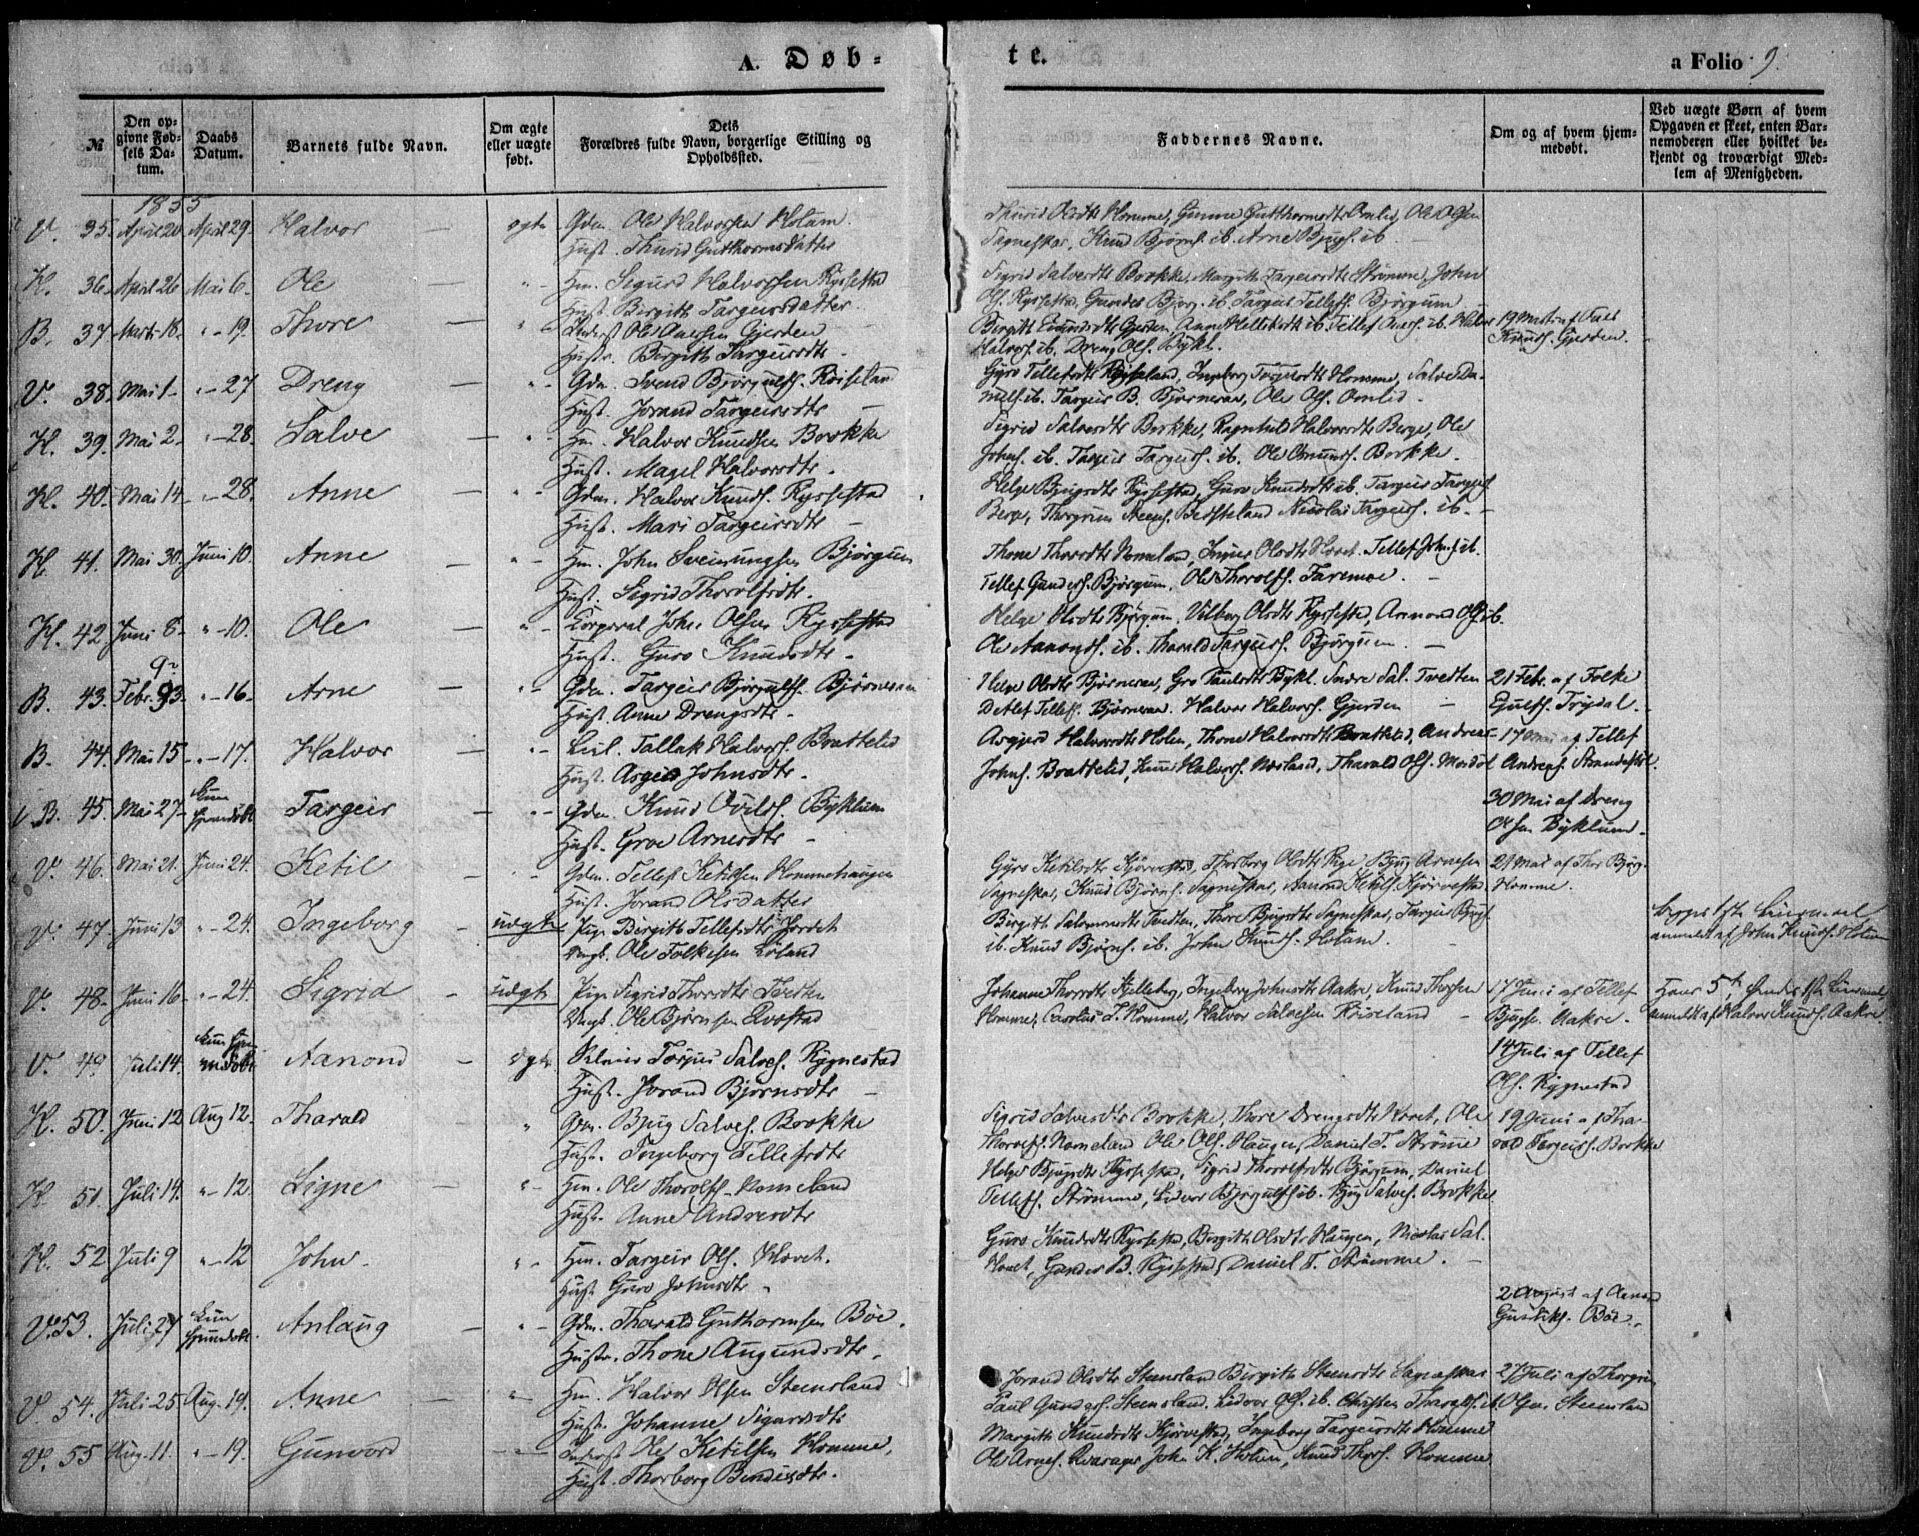 A. Døb- te. a Folio 9.
№
Den opgivne Fødsels Datum.
Daabs Datum.
Barnets fulde Navn.
Om ægte eller uægte født.
Dets Forældres fulde Navn, borgerlige Stilling og Opholdssted.
Faddernes Navne.
Om og af hvem hjemmedøbt.
Ved uægte Børn af hvem Opgaven er skeet, enten Barnemoderen eller hvilket bekjendt og troværdigt Medlem af Menigheden.
1855
V. 35. April 20 April 29. Halvor ægte Gdm. Ole Halvorssen Holam
Hust. Thurid Gutthormsdatter
Thurid Olsdtr Homme, Gunne Gutthormsdtr Omlid, Ole Olsen
Sagneskar, Knud Bjørns. ib. Arne Bjugs. ib.
H. 36. April 26 Mai 6. Ole Hm. Sigurd Halvorssen Ryssestad
Hust. Birgith Targeirsdatter.
Sigrid Salvesdtr Brokke, Margith Targeirsdtr Strømme, John
Ols. Ryssestad, Gunder Bjørg. ib. Targeir Tellefs. Bjørgum
B. 37. Marts 18. 19. Thore Ole Gjerden
Hustr. Birgith Targeirsdtr.
Halvors. ib. Dreng Ols. Bykl.
19 Marts af
Knuds. Gjerden.
V. 38. Mai 1 27 Dreng Gdm. Svend Bjørgulfs. Røiseland
Hust. Jorand Targeirsdtr
Gyro Tellefsdtr Røiseland, Ingeborg Homme, Salve Da-
niels. ib. Targeir B. Bjørneraa, Ole Ols. Omlid.
H. 39. Mai 2. 28. Salve Hm. Halvor Knudsen Brokke
Hust. Magel Halvorsdtr.
Sigrid Salvesdtr Brokke, Ragnhild Halvorsdtr Berge, Ole
Johns. ib. Targeir Targeirs. ib. Ole Omunds. Brokke.
H. 40. Mai 14. 28. Anne Gdm. Halvor Knuds. Ryssestad
Hust. Mari Targeirsdtr
Helge Bjugsdtr Ryssestad, Guro Knudsdtr ib. Targeir Targeirs.
Berge, Thorgrim Nicolai Targeirs. ib.
H. 41. Mai 30. Juni 10. Anne Hm. John Sveinungsen Bjørgum
Hust. Sigrid Thorolfsdtr.
Thone Thorsdtr Nomeland, Olsdtr Hovet. Tellef Johns. ib.
Tellef Gunders. Bjørgum, Ole Thorolfs. Faremoe.
H. 42 Juni 8. 10. Ole Corporal John Olsen Ryssestad
Hust. Guro Knudsdtr.
Helge Olsdtr Bjørgum, Vilborg Olsdtr Ryssestad, Aamond Ols. ib.
Ole Aamonds. ib. Tharald Targeirs. Bjørgum.
B. 43. Febr. 16. Arne Gdm. Targeir Bjørgulfs. Bjørneraa
Hust. Anne Drengsdtr.
Helge Olsdtr Bjørneraa, Gro Paulsdtr Bykl. Sal. Tvedten
Detlef Tellefs. Bjørneraa. Halvor Halvors. Gjerden
21 Febr. af Folke
Eyulfs. Trydal.
B. 44. Mai 15 17. Halvor Tallak Halvors. Brattelid
Hust. Johnsdtr.
Halvorsdtr Holen, Thone Halvorsdtr Brattelid, Andreas
Johns. Brattelid, Knud Halvors. Næsland, Tharald Ols.
17 Mai af Tellef
Andreas.
B. 45. Mai 27 Kun hjemdøbt Targeir Gdm. Knud Byklum
Hust. Groe Arnesdtr
30 Mai af Dreng
Olsen Byklum.
V. 46. Mai 21. Juni 24. Ketil Gdm. Tellef Ketilsen Hommehaugen
Hust. Jorand Olsdatter
Gyro Ketilsdtr Kjørvestad, Thorborg Olsdtr Rige, Bjug Arnesen
Sagneskar, Knud Bjørns. Sagneskar, Aanond Ketils. Kjørvestad
21 Mai af Thor Bjørg.
Homme.
V. 47. Juni 13 24. Ingeborg uægte Pige Birgith Tellefsdtr Jordet
Ungk. Ole Folkesen Løland
Birgith Salomonsdtr Tvedten, Thore Bjugsdtr Sagneskar, Targeir Bjugs.
ib. Knud Bjørns. ib. John Knuds. Holam.
anmeldt af John Knuds. Holam
V. 48. Juni 16 24. Sigrid uægte Pige Sigrid Thorsdtr Tvedten
Ungk. Ole Bjørnsen Qvestad
Johanne Thorsdtr Kjelleberg, Ingeborg Johnsdtr Aakre, Knud Thorsen
Homme, Carolus T. Homme, Halvor Salvesen Røiseland
17 Juni af Tellef
Bjugs. Aakre.
anmeldt af Halvor Knuds. Aakre.
V. 49. Juli 14. Kun hjemdøbt Aanond ægte Torjus Salves. Rygnestad
Hust. Jorand Bjørnsdtr
14 Juli af Tellef
Ols. Rygnestad
H. 50. Juni 12 Aug 12. Tharald Gdm. Bjug Salves. Brokke
Hust. Ingeborg Tellefsdtr
Sigrid Salvesdtr Brokke, Thore Drengsdtr Hovet, Ole
Thorolfs. Nomeland Ole Ols. Haugen, Daniel T. Strømme
19 Juni af Tha-
rald Targeirs. Brokke
H. 51. Juli 14. 12. Signe Hm. Ole Thorolfs. Nomeland
Hust. Anne Andersdtr
Helge Bjugsdtr Ryssestad, Sigrid Thorolfsdtr Bjørgum, Daniel
Tellefs. Strømme, Lidvor Bjørgulfs. ib. Bjug Salves. Brokke
H. 52 Juli 9 12 John Hm. Targeir Ols. Hovet.
Hust. Guro Johnsdtr
Guro Knudsdtr Ryssestad, Birgith Olsdtr Haugen, Nicolai Sal.
Hovet, Gunder B. Ryssestad, Daniel T. Strømme.
V. 53. Juli 27 Kun hjemdøbt. Anlaug Gdm. Tharald Guthormsen Bøe.
Hustr. Thone Augundsdtr.
2 August af
Bøe.
V. 54. Juli 25 Aug. 19. Anne Hm. Halvor Olsen Steensland
Hust. Johanne Sigurdsdtr
Jorand Olsdtr Steensland Birgith Steensdtr Sagneskar
Paul Gunders. Steensland. Lidvor Ols. ib. Christen Tharalds. ib.
27 Juli af Thorgrim
Olsen Steensland
V. 55 Aug. 11. 19. Gunvord Ole Ketilsen Homme,
Hust. Thorborg Bendixdtr.
Margith Knudsdtr Kjørvestad, Ingeborg Targeirsdtr Homme
Ole Arnes. Kvarager John K. Holam, Knud Thors. Homme